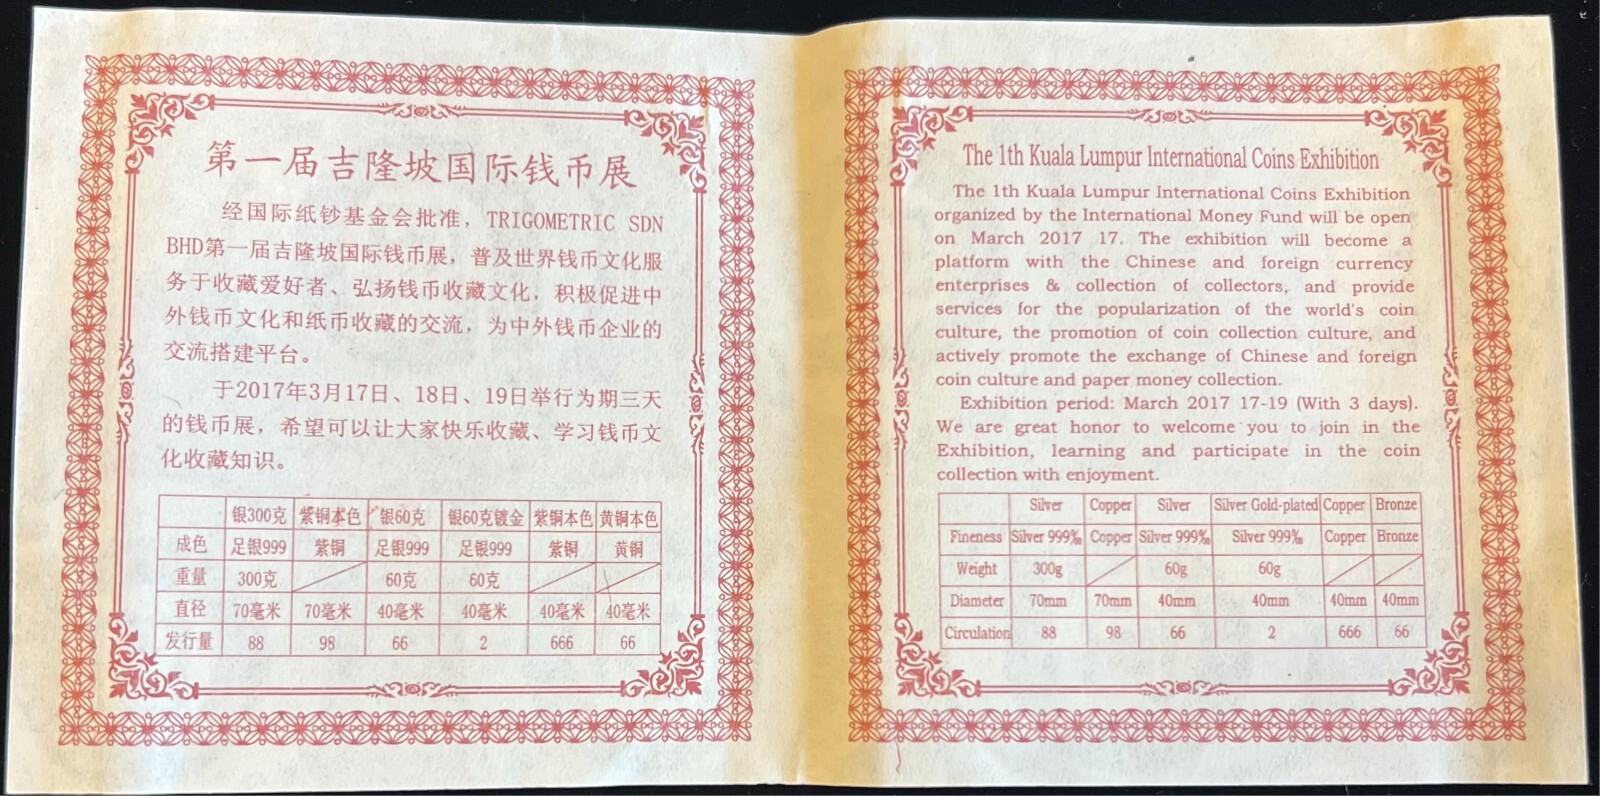 第一届吉隆坡国际钱币展
经国际纸钞基金会批准，TRIGOMETRIC SDN
BHD第一届吉隆坡国际钱币展，普及世界钱币文化服
务于收藏爱好者、弘扬钱币收藏文化，积极促进中
外钱币文化和纸币收藏的交流，为中外钱币企业的
交流搭建平台。
于2017年3月17日、18日、19日举行为期三天
的钱币展，希望可以让大家快乐收藏、学习钱币文
化收藏知识。
银300克 紫铜本色 银60克 银60克镀金 紫铜本色 黄铜本色
成色 足银999 紫铜 足银999 足银999 紫铜 黄铜
重量 300克 60克 60克
直径 70毫米 70毫米 40毫米 40毫米 40毫米 40毫米
发行量 88 98 66 2 666 66
The 1th Kuala Lumpur International Coins Exhibition
The 1th Kuala Lumpur International Coins Exhibition
organized by the International Money Fund will be open
on March 2017 17. The exhibition will become a
platform with the Chinese and foreign currency
enterprises & collection of collectors, and provide
services for the popularization of the world's coin
culture, the promotion of coin collection culture, and
actively promote the exchange of Chinese and foreign
coin culture and paper money collection.
Exhibition period: March 2017 17-19 (With 3 days).
We are great honor to welcome you to join in the
Exhibition, learning and participate in the coin
collection with enjoyment.
Silver Copper Silver Silver Gold-plated Copper Bronze
Fineness Silver 999‰ Copper Silver 999‰ Silver 999‰ Copper Bronze
Weight 300g 60g 60g
Diameter 70mm 70mm 40mm 40mm 40mm 40mm
Circulation 88 98 66 2 666 66